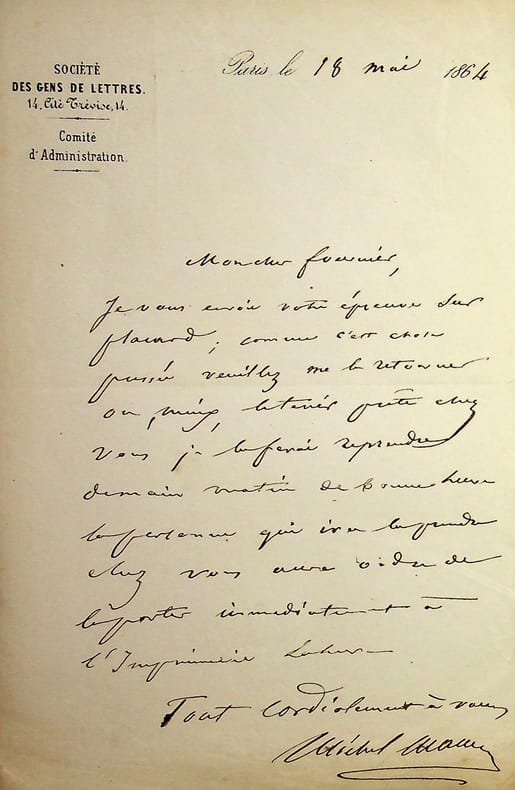 SOCIÉTÉ
DES GENS DE LETTRES.
14, Cité Trévise, 14.
Comité
d'Administration.
Paris, le 18 mai 1864
Mon cher fournier,
Je vous envoie votre épreuve sur
placard ; comme c'est chose
pressée veuillez me la retourner
ou, mieux, la tenir prête chez
vous je la ferai reprendre
demain matin de bonne heure
la personne qui ira la prendre
chez vous aura ordre de
la porter immédiatement à
l'Imprimerie Lahure
Tout cordialement à vous
Michel Masson